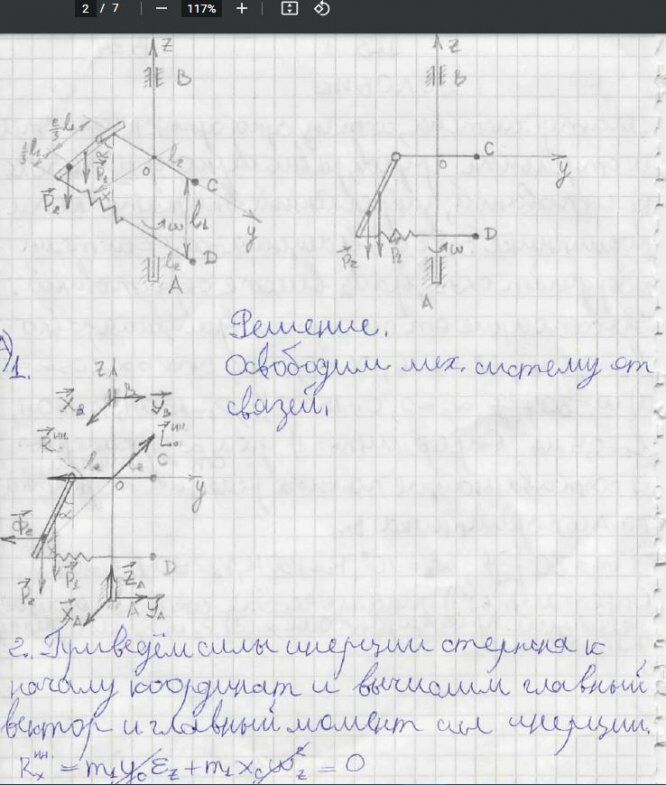 2 / 7 117%
z
B
z
B
2/3 l₁
1/3 l₁
l₂
O
C
P₂
P₁
ω
l₁
y
l₂
D
A
C
O
y
P₂
P₁
D
ω
A
Решение.
1.
Освободим мех. систему от
связей.
z
B
X_B
Y_B
R^ин.
L_o^ин.
l₂
l₂
C
O
y
α
Ф₂
P₂
P₁
D
Z_A
X_A
A
Y_A
2. Приведём силы инерции стержня к
началу координат и вычислим главный
вектор и главный момент сил инерции.
R_x^ин. = m₁y_cε_z + m₁x_cω_z² = 0